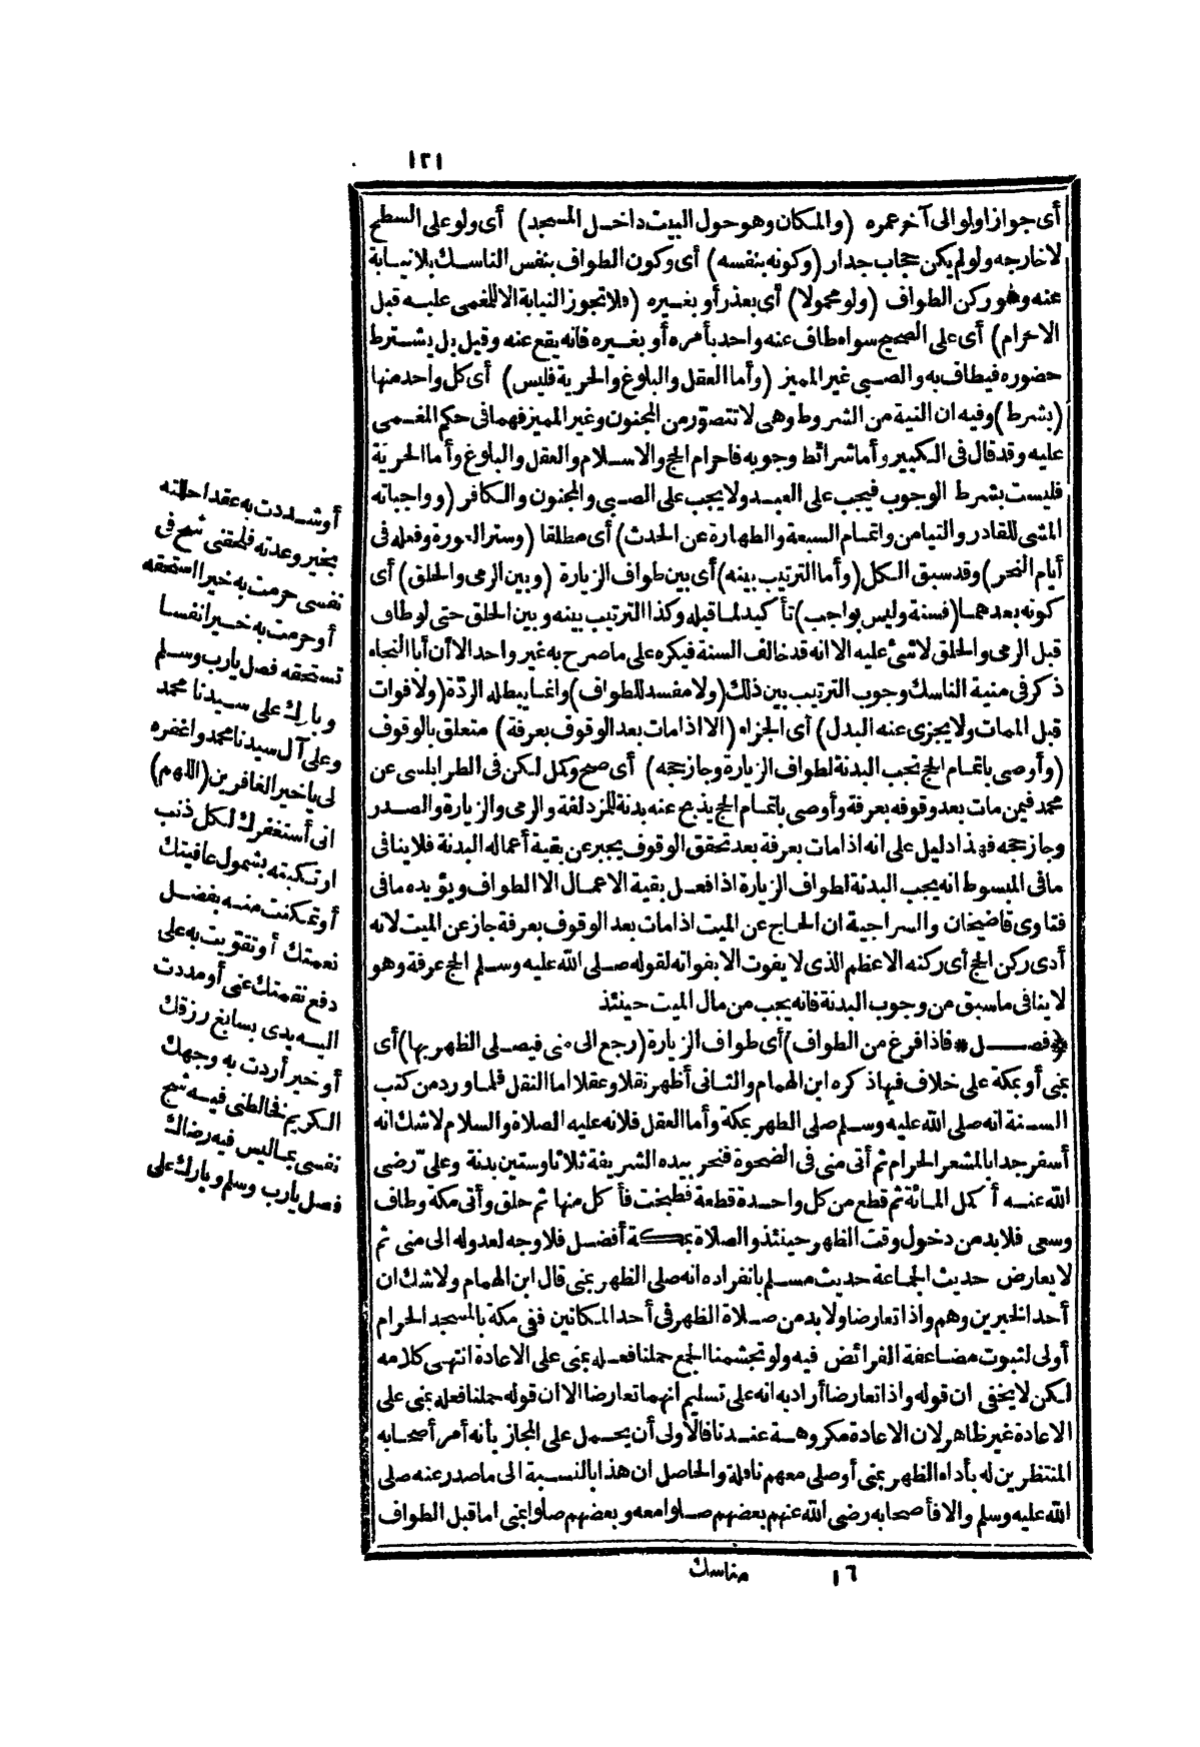 ١٢١
أى جوازا ولو الى آخر عمره (والمكان وهو حول البيت داخل المسجد) أى ولو على السطح
لا خارجه ولو لم يكن حجاب جدار (وكونه بنفسه) أى وكون الطواف بنفس الناسك بلا نيابة
عنه وهو ركن الطواف (ولو محمولا) أى بعذر أو بغيره (فلا تجوز النيابة الا للمغمى عليه قبل
الاحرام) أى على الصحيح سواء طاف عنه واحد بأمره أو بغيره فانه يقع عنه وقيل بل يشترط
حضوره فيطاف به والصبى غير المميز (وأما العقل والبلوغ والحرية فليس) أى كل واحد منها
(بشرط) وفيه ان النية من الشروط وهى لا تتصوّر من المجنون وغير المميز فهما فى حكم المغمى
عليه وقد قال فى الكبير وأما شرائط وجوبه فاحرام الحج والاسلام والعقل والبلوغ وأما الحرية
فليست بشرط الوجوب فيجب على العبد ولا يجب على الصبى والمجنون والكافر (وواجباته
المشى للقادر والتيامن واتمام السبعة والطهارة عن الحدث) أى مطلقا (وستر العورة وفعله فى
أيام النحر) وقد سبق الكل (وأما الترتيب بينه) أى بين طواف الزيارة (وبين الرمى والحلق) أى
كونه بعدهما (فسنة وليس بواجب) تأكيد لما قبله وكذا الترتيب بينه وبين الحلق حتى لو طاف
قبل الرمى والحلق لا شئ عليه الا انه قد خالف السنة فيكره على ما صرح به غير واحد الا أن أبا النجاه
ذكر فى منية الناسك وجوب الترتيب بين ذلك (ولا مفسد للطواف) وانما يبطله الردّة (ولا فوات
قبل الممات ولا يجزى عنه البدل) أى الجزاء (الا اذا مات بعد الوقوف بعرفة) متعلق بالوقوف
(وأوصى باتمام الحج تجب البدنة لطواف الزيارة وجاز حجه) أى صح وكمل لكن فى الطرابلسى عن
محمد فيمن مات بعد وقوفه بعرفة وأوصى باتمام الحج يذبح عنه بدنة للمزدلفة والرمى والزيارة والصدر
وجاز حجه فهذا دليل على انه اذا مات بعرفة بعد تحقق الوقوف يجبر عن بقية أعماله البدنة فلا ينافى
ما فى المبسوط انه يجب البدنة لطواف الزيارة اذا فعل بقية الاعمال الا الطواف ويؤيده ما فى
فتاوى قاضيخان والسراجية ان الحاج عن الميت اذا مات بعد الوقوف بعرفة جاز عن الميت لانه
أدى ركن الحج أى ركنه الاعظم الذى لا يفوت الا بفواته لقوله صلى الله عليه وسلم الحج عرفة وهو
لا ينافى ما سبق من وجوب البدنة فانه يجب من مال الميت حينئذ
﴿فصل* فاذا فرغ من الطواف) أى طواف الزيارة (رجع الى منى فيصلى الظهر بها) أى
بمنى أو بمكة على خلاف فيها ذكره ابن الهمام والثانى أظهر نقلا وعقلا اما النقل فلما ورد من كتب
السنة انه صلى الله عليه وسلم صلى الظهر بمكة وأما العقل فلانه عليه الصلاة والسلام لا شك انه
أسفر جدا بالمشعر الحرام ثم أتى منى فى الضحوة فنحر بيده الشريفة ثلاثا وستين بدنة وعلىّ رضى
الله عنه أكمل المائة ثم قطع من كل واحدة قطعة فطبخت فأكل منها ثم حلق وأتى مكة وطاف
وسعى فلا بد من دخول وقت الظهر حينئذ والصلاة بمكة أفضل فلا وجه لعدوله الى منى ثم
لا يعارض حديث الجماعة حديث مسلم بانفراده انه صلى الظهر بمنى قال ابن الهمام ولا شك ان
أحد الخبرين وهم واذا تعارضا ولا بد من صلاة الظهر فى أحد المكانين ففى مكة بالمسجد الحرام
أولى لثبوت مضاعفة الفرائض فيه ولو تجشمنا الجمع حملنا فعله بمنى على الاعادة انتهى كلامه
لكن لا يخفى ان قوله واذا تعارضا أراد به انه على تسليم انهما تعارضا الا ان قوله حملنا فعله بمنى على
الاعادة غير ظاهر لان الاعادة مكروهة عندنا فالأولى أن يحمل على المجاز بأنه أمر أصحابه
المنتظرين له بأداء الظهر بمنى أو صلى معهم نافلة والحاصل ان هذا بالنسبة الى ما صدر عنه صلى
الله عليه وسلم والا فأصحابه رضى الله عنهم بعضهم صلوا معه وبعضهم صلوا بمنى اما قبل الطواف
أو شددت به عقد احللته
بخير وعدته فلحقنى شح فى
نفسى حرمت به خيرا استحقه
أو حرمت به خيرا نفسا
تستحقه فصل يارب وسلم
وبارك على سيدنا محمد
وعلى آل سيدنا محمد واغفره
لى يا خير الغافرين (اللهم)
انى أستغفرك لكل ذنب
ارتكبته بشمول عافيتك
أو تمكنت منه بفضل
نعمتك أو تقويت به على
دفع نقمتك عنى أو مددت
اليه يدى بسابغ رزقك
أو خير أردت به وجهك
الكريم فخالطنى فيه شح
نفسى بما ليس فيه رضاك
فصل يارب وسلم وبارك على
١٦ مناسك